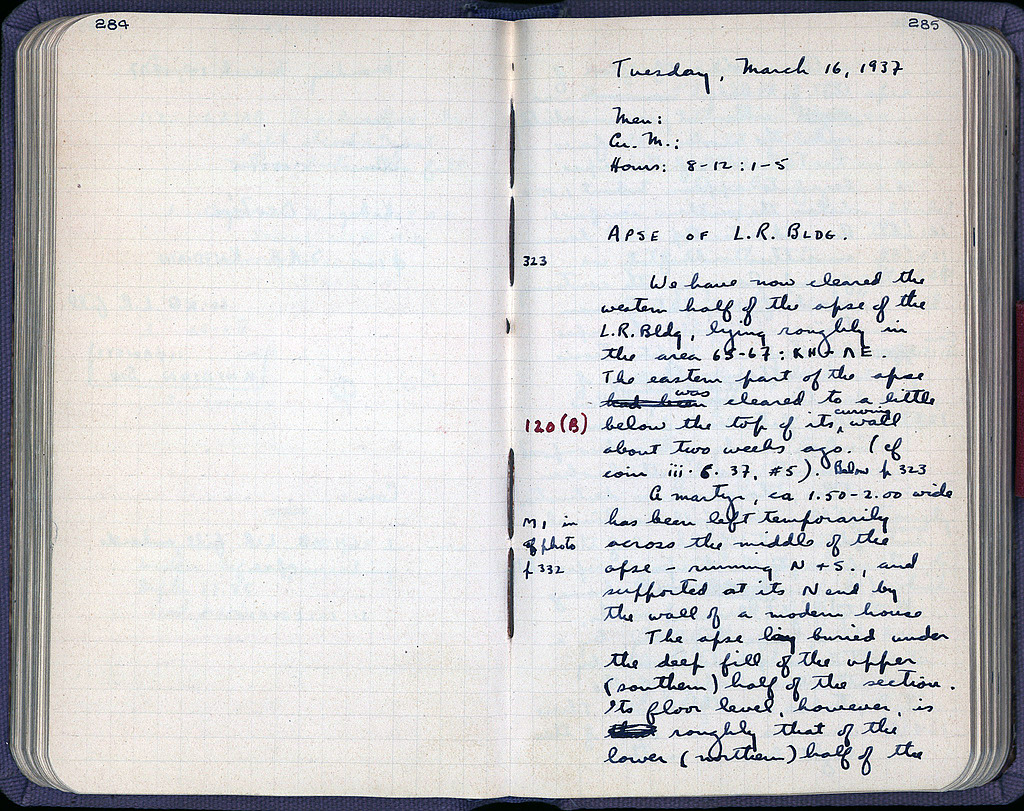 284
285
Tuesday, March 16, 1937
Men:
Cu. M.:
Hours: 8-12 : 1-5
APSE OF L.R. BLDG.
323
We have now cleared the
western half of the apse of the
L.R. Bldg, lying roughly in
the area 65-67 : KH - ΛE.
The eastern part of the apse
had been was cleared to a little
120 (B)
below the top of its curving wall
about two weeks ago. (cf
coin iii. 6. 37, #5). Below p 323
A martyr, ca 1.50-2.00 wide
M, in
of photo
p 332
has been left temporarily
across the middle of the
apse - running N + S., and
supported at its N end by
the wall of a modern house
The apse lay buried under
the deep fill of the upper
(southern) half of the section.
Its floor level, however, is
roughly that of the
lower (northern) half of the